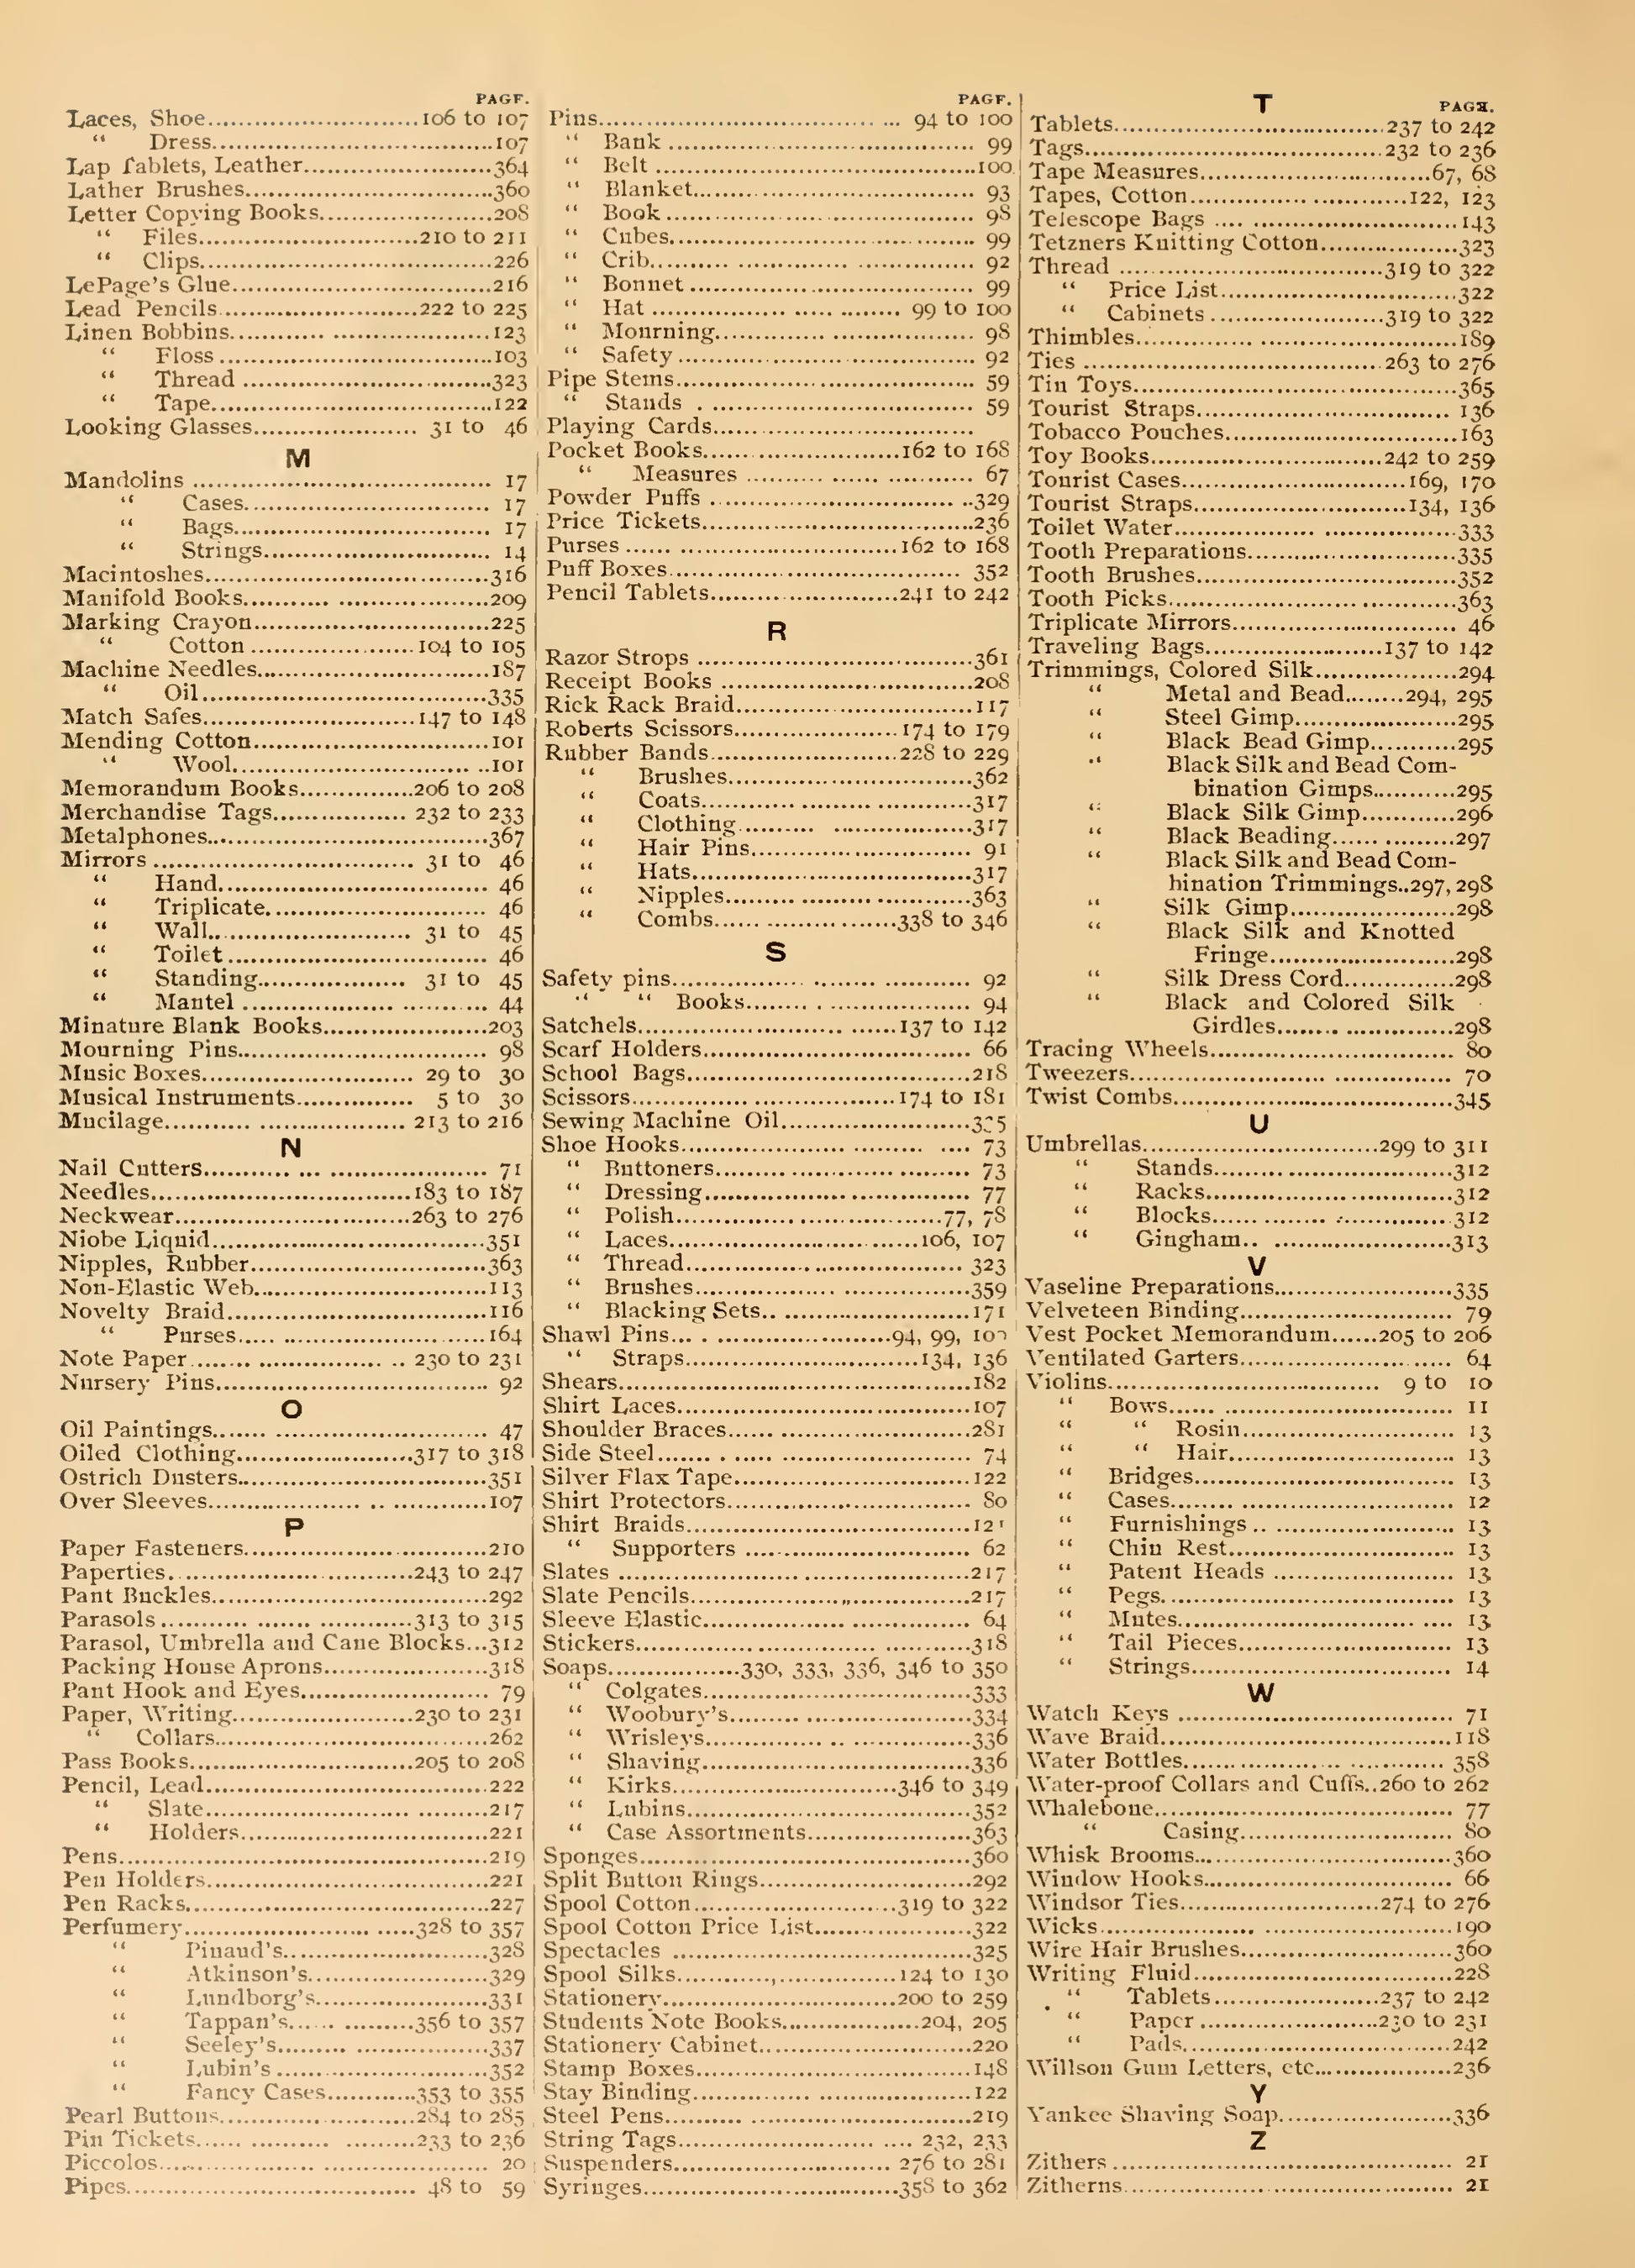 PAGE.
Laces, Shoe..............................106 to 107
“ Dress........................................107
Lap Tablets, Leather...........................364
Lather Brushes...................................360
Letter Copying Books.........................208
“ Files...............................210 to 211
“ Clips.........................................226
LePage's Glue.....................................216
Lead Pencils............................222 to 225
Linen Bobbins.....................................123
“ Floss.......................................103
“ Thread...................................323
“ Tape.......................................122
Looking Glasses....................... 31 to 46
M
Mandolins........................................... 17
“ Cases................................... 17
“ Bags.................................... 17
“ Strings................................ 14
Macintoshes........................................316
Manifold Books...................................209
Marking Crayon..................................225
“ Cotton.......................104 to 105
Machine Needles.................................187
“ Oil.........................................335
Match Safes..............................147 to 148
Mending Cotton..................................101
“ Wool....................................101
Memorandum Books................206 to 208
Merchandise Tags................... 232 to 233
Metalphones........................................367
Mirrors..................................... 31 to 46
“ Hand...................................... 46
“ Triplicate............................... 46
“ Wall........................... 31 to 45
“ Toilet..................................... 46
“ Standing..................... 31 to 45
“ Mantel................................... 44
Minature Blank Books.......................203
Mourning Pins................................... 98
Music Boxes.............................. 29 to 30
Musical Instruments................ 5 to 30
Mucilage................................. 213 to 216
N
Nail Cutters........................................ 71
Needles....................................183 to 187
Neckwear.................................263 to 276
Niobe Liquid.......................................351
Nipples, Rubber..................................363
Non-Elastic Web.................................113
Novelty Braid.....................................116
“ Purses..................................164
Note Paper............................ 230 to 231
Nursery Pins...................................... 92
O
Oil Paintings...................................... 47
Oiled Clothing.........................317 to 318
Ostrich Dusters...................................351
Over Sleeves.......................................107
P
Paper Fasteners..................................210
Paperties..................................243 to 247
Pant Buckles.......................................292
Parasols...................................313 to 315
Parasol, Umbrella and Cane Blocks...312
Packing House Aprons.......................318
Pant Hook and Eyes........................... 79
Paper, Writing.........................230 to 231
“ Collars....................................262
Pass Books...............................205 to 208
Pencil, Lead........................................222
“ Slate........................................217
“ Holders...................................221
Pens....................................................219
Pen Holders........................................221
Pen Racks...........................................227
Perfumery................................328 to 357
“ Pinaud's..............................328
“ Atkinson's...........................329
“ Lundborg's..........................331
“ Tappan's..................356 to 357
“ Seeley's...............................337
“ Lubin's................................352
“ Fancy Cases.............353 to 355
Pearl Buttons...........................284 to 285
Pin Tickets..............................233 to 236
Piccolos............................................... 20
Pipes........................................ 48 to 59
PAGE.
Pins.......................................... 94 to 100
“ Bank........................................ 99
“ Belt..........................................100
“ Blanket.................................... 93
“ Book........................................ 98
“ Cubes...................................... 99
“ Crib......................................... 92
“ Bonnet.................................... 99
“ Hat................................ 99 to 100
“ Mourning................................ 98
“ Safety...................................... 92
Pipe Stems......................................... 59
“ Stands..................................... 59
Playing Cards.................................
Pocket Books...........................162 to 168
“ Measures............................ 67
Powder Puffs......................................329
Price Tickets.......................................236
Purses.....................................162 to 168
Puff Boxes......................................... 352
Pencil Tablets..........................241 to 242
R
Razor Strops.......................................361
Receipt Books.....................................208
Rick Rack Braid..................................117
Roberts Scissors.......................174 to 179
Rubber Bands..........................228 to 229
“ Brushes.................................362
“ Coats....................................317
“ Clothing................................317
“ Hair Pins.............................. 91
“ Hats......................................317
“ Nipples.................................363
“ Combs.......................338 to 346
S
Safety pins......................................... 92
“ “ Books............................ 94
Satchels...................................137 to 142
Scarf Holders..................................... 66
School Bags........................................218
Scissors....................................174 to 181
Sewing Machine Oil............................335
Shoe Hooks....................................... 73
“ Buttoners............................... 73
“ Dressing................................. 77
“ Polish.................................77, 78
“ Laces..............................106, 107
“ Thread.................................. 323
“ Brushes..................................359
“ Blacking Sets.........................171
Shawl Pins...........................94, 99, 100
“ Straps..............................134, 136
Shears.................................................182
Shirt Laces..........................................107
Shoulder Braces..................................281
Side Steel........................................... 74
Silver Flax Tape..................................122
Shirt Protectors.................................. 80
Shirt Braids.........................................121
“ Supporters............................. 62
Slates..................................................217
Slate Pencils.......................................217
Sleeve Elastic..................................... 64
Stickers...............................................318
Soaps.................330, 333, 336, 346 to 350
“ Colgates..................................333
“ Woobury's..............................334
“ Wrisleys.................................336
“ Shaving...................................336
“ Kirks............................346 to 349
“ Lubins.....................................352
“ Case Assortments....................363
Sponges..............................................360
Split Button Rings..............................292
Spool Cotton...........................319 to 322
Spool Cotton Price List......................322
Spectacles...........................................325
Spool Silks..............................124 to 130
Stationery...............................200 to 259
Students Note Books..................204, 205
Stationery Cabinet..............................220
Stamp Boxes.......................................148
Stay Binding.......................................122
Steel Pens...........................................219
String Tags............................... 232, 233
Suspenders.............................. 276 to 281
Syringes...................................358 to 362
T
PAGE.
Tablets.....................................237 to 242
Tags.........................................232 to 236
Tape Measures................................67, 68
Tapes, Cotton.............................122, 123
Telescope Bags...................................143
Tetzners Knitting Cotton....................323
Thread.....................................319 to 322
“ Price List................................322
“ Cabinets.......................319 to 322
Thimbles.............................................189
Ties..........................................263 to 276
Tin Toys.............................................365
Tourist Straps.................................... 136
Tobacco Pouches.................................163
Toy Books................................242 to 259
Tourist Cases..............................169, 170
Tourist Straps.............................134, 136
Toilet Water........................................333
Tooth Preparations.............................335
Tooth Brushes.....................................352
Tooth Picks.........................................363
Triplicate Mirrors............................... 46
Traveling Bags.........................137 to 142
Trimmings, Colored Silk....................294
“ Metal and Bead.......294, 295
“ Steel Gimp........................295
“ Black Bead Gimp..............295
“ Black Silk and Bead Com-
bination Gimps..............295
“ Black Silk Gimp...............296
“ Black Beading...................297
“ Black Silk and Bead Com-
bination Trimmings..297, 298
“ Silk Gimp.........................298
“ Black Silk and Knotted
Fringe............................298
“ Silk Dress Cord.................298
“ Black and Colored Silk
Girdles...........................298
Tracing Wheels.................................. 80
Tweezers............................................ 70
Twist Combs.......................................345
U
Umbrellas................................299 to 311
“ Stands.................................312
“ Racks...................................312
“ Blocks..................................312
“ Gingham..............................313
V
Vaseline Preparations.........................335
Velveteen Binding.............................. 79
Vest Pocket Memorandum......205 to 206
Ventilated Garters.............................. 64
Violins..................................... 9 to 10
“ Bows....................................... 11
“ “ Rosin............................. 13
“ “ Hair............................... 13
“ Bridges................................... 13
“ Cases...................................... 12
“ Furnishings............................ 13
“ Chin Rest............................... 13
“ Patent Heads.......................... 13
“ Pegs........................................ 13
“ Mutes..................................... 13
“ Tail Pieces.............................. 13
“ Strings.................................... 14
W
Watch Keys....................................... 71
Wave Braid.........................................118
Water Bottles..................................... 358
Water-proof Collars and Cuffs..260 to 262
Whalebone......................................... 77
“ Casing.............................. 80
Whisk Brooms....................................360
Window Hooks.................................. 66
Windsor Ties...........................274 to 276
Wicks..................................................190
Wire Hair Brushes..............................360
Writing Fluid......................................228
“ Tablets.........................237 to 242
“ Paper...........................230 to 231
“ Pads......................................242
Willson Gum Letters, etc....................236
Y
Yankee Shaving Soap.........................336
Z
Zithers................................................ 21
Zitherns.............................................. 21